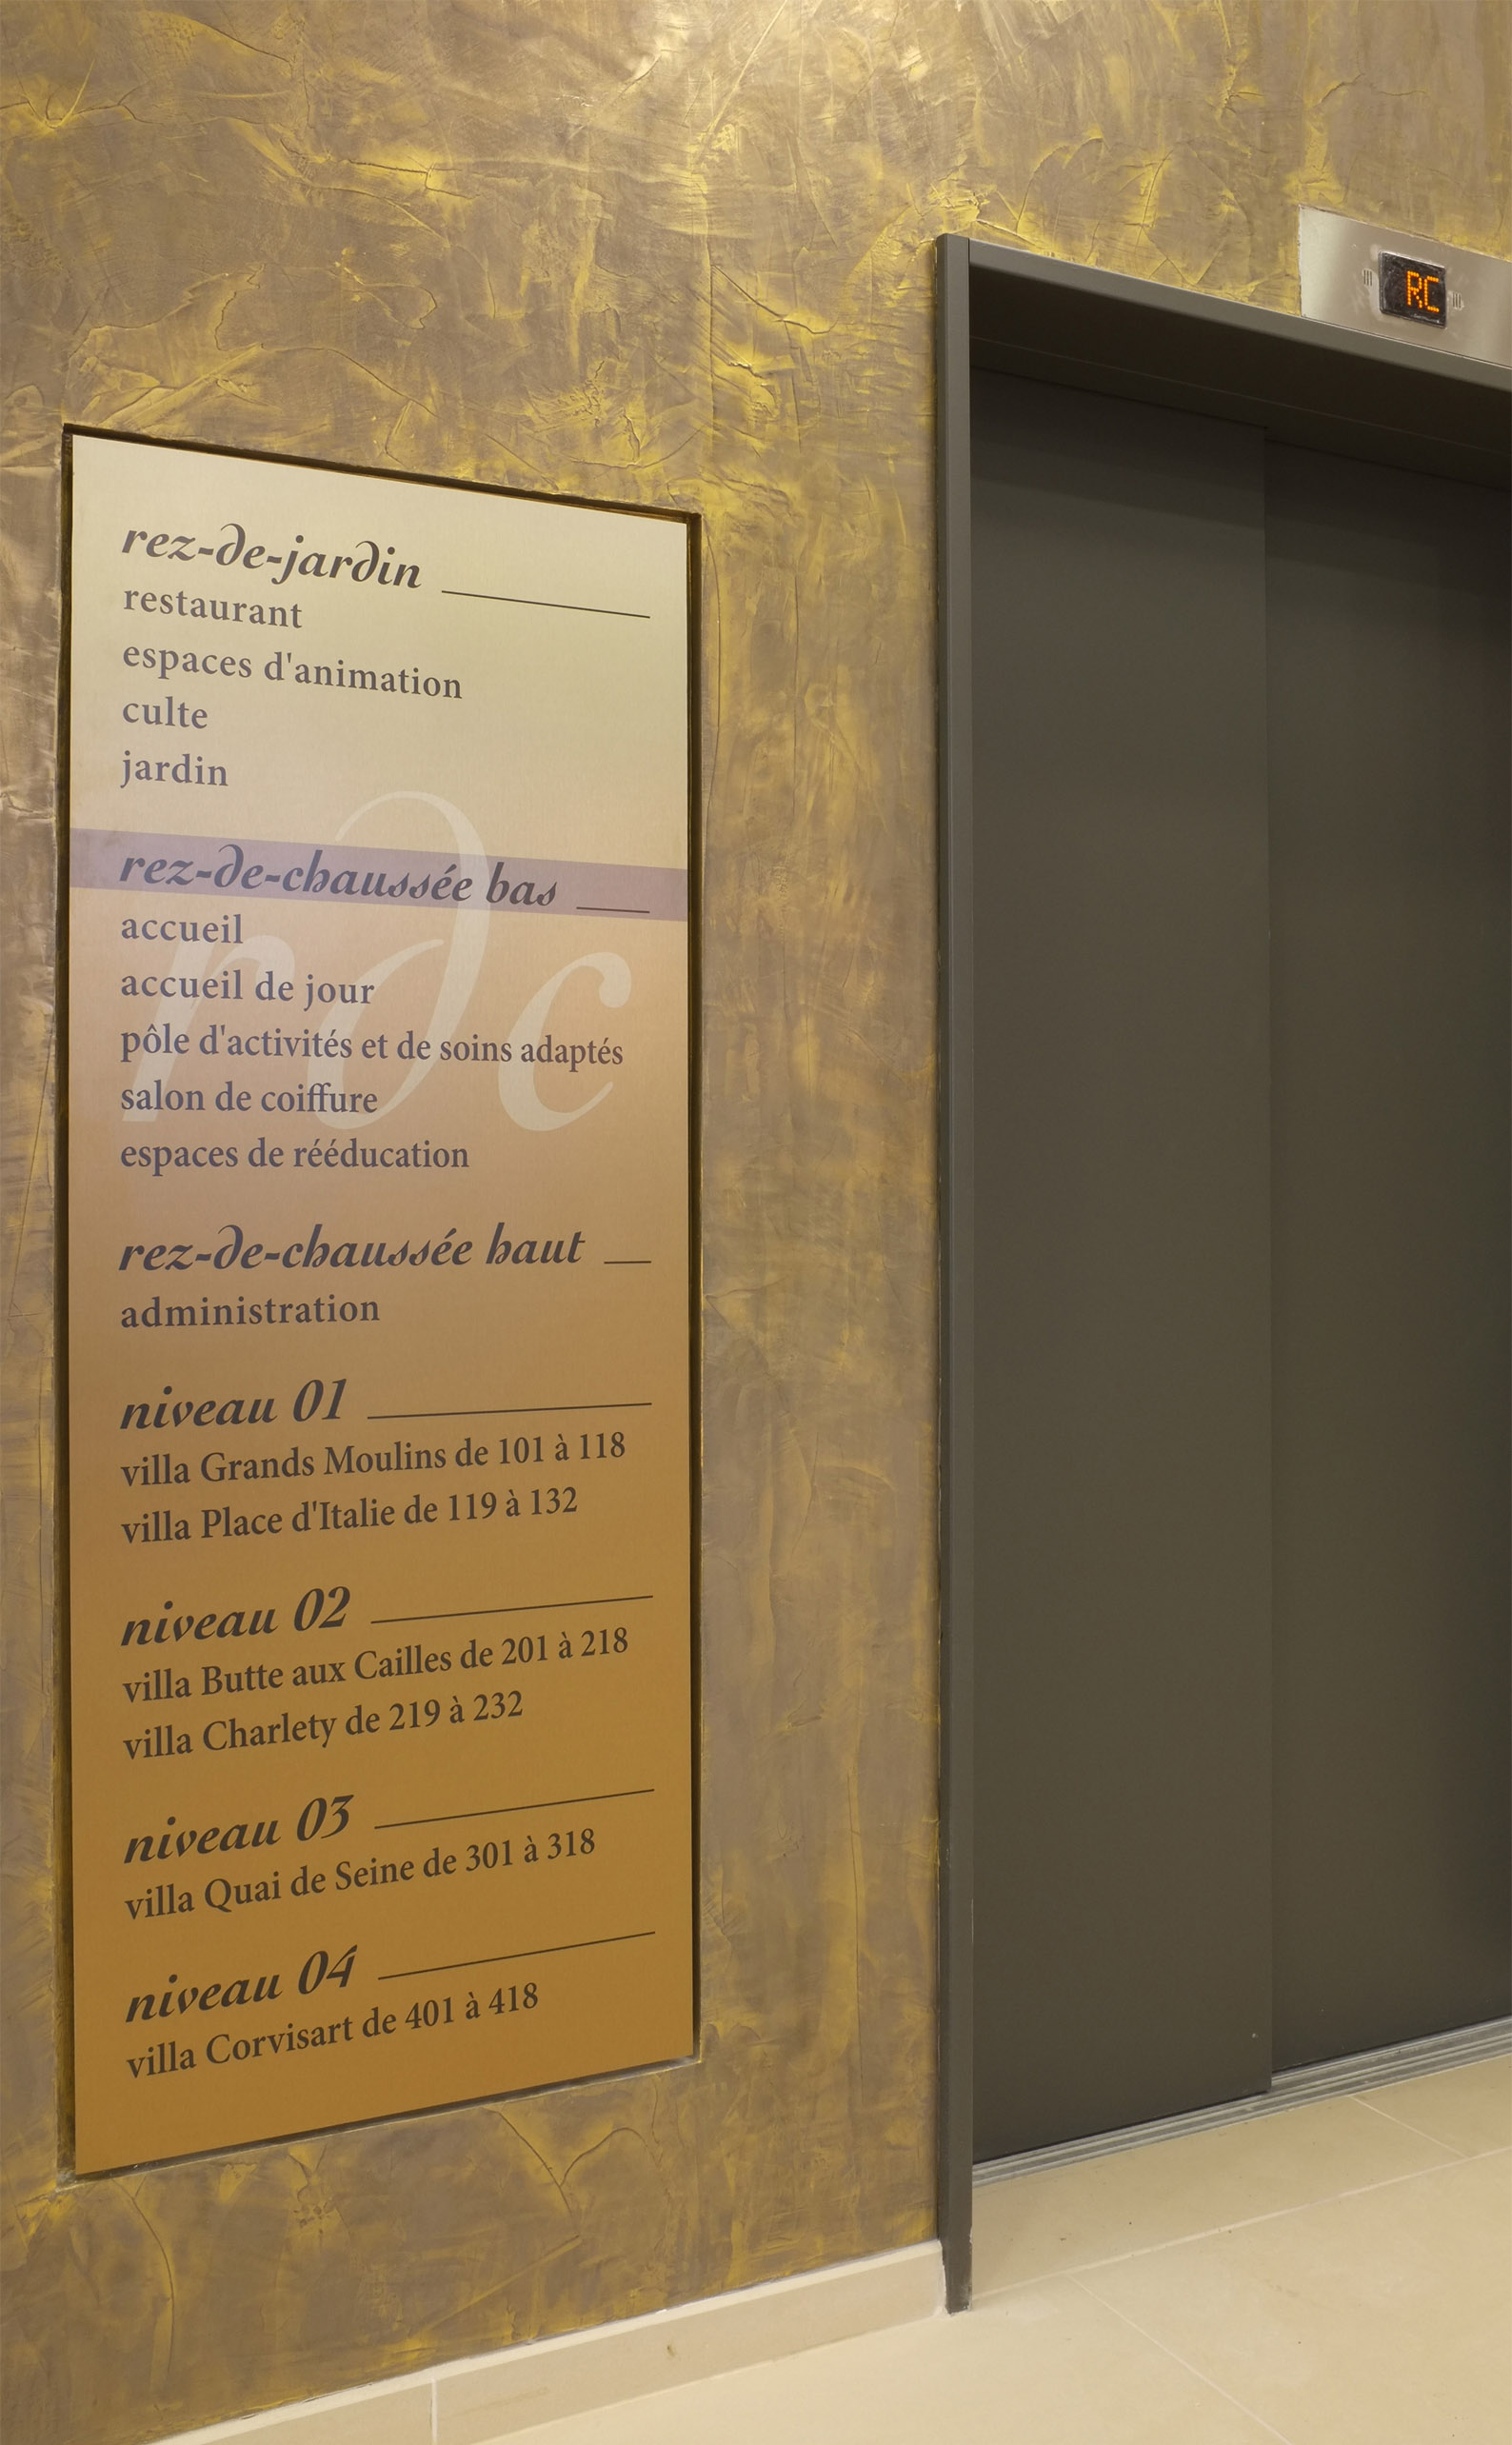 rez-de-jardin
restaurant
espaces d'animation
culte
jardin
rez-de-chaussée bas
rdc
accueil
accueil de jour
pôle d'activités et de soins adaptés
salon de coiffure
espaces de rééducation
rez-de-chaussée haut
administration
niveau 01
villa Grands Moulins de 101 à 118
villa Place d'Italie de 119 à 132
niveau 02
villa Butte aux Cailles de 201 à 218
villa Charlety de 219 à 232
niveau 03
villa Quai de Seine de 301 à 318
niveau 04
villa Corvisart de 401 à 418
RC